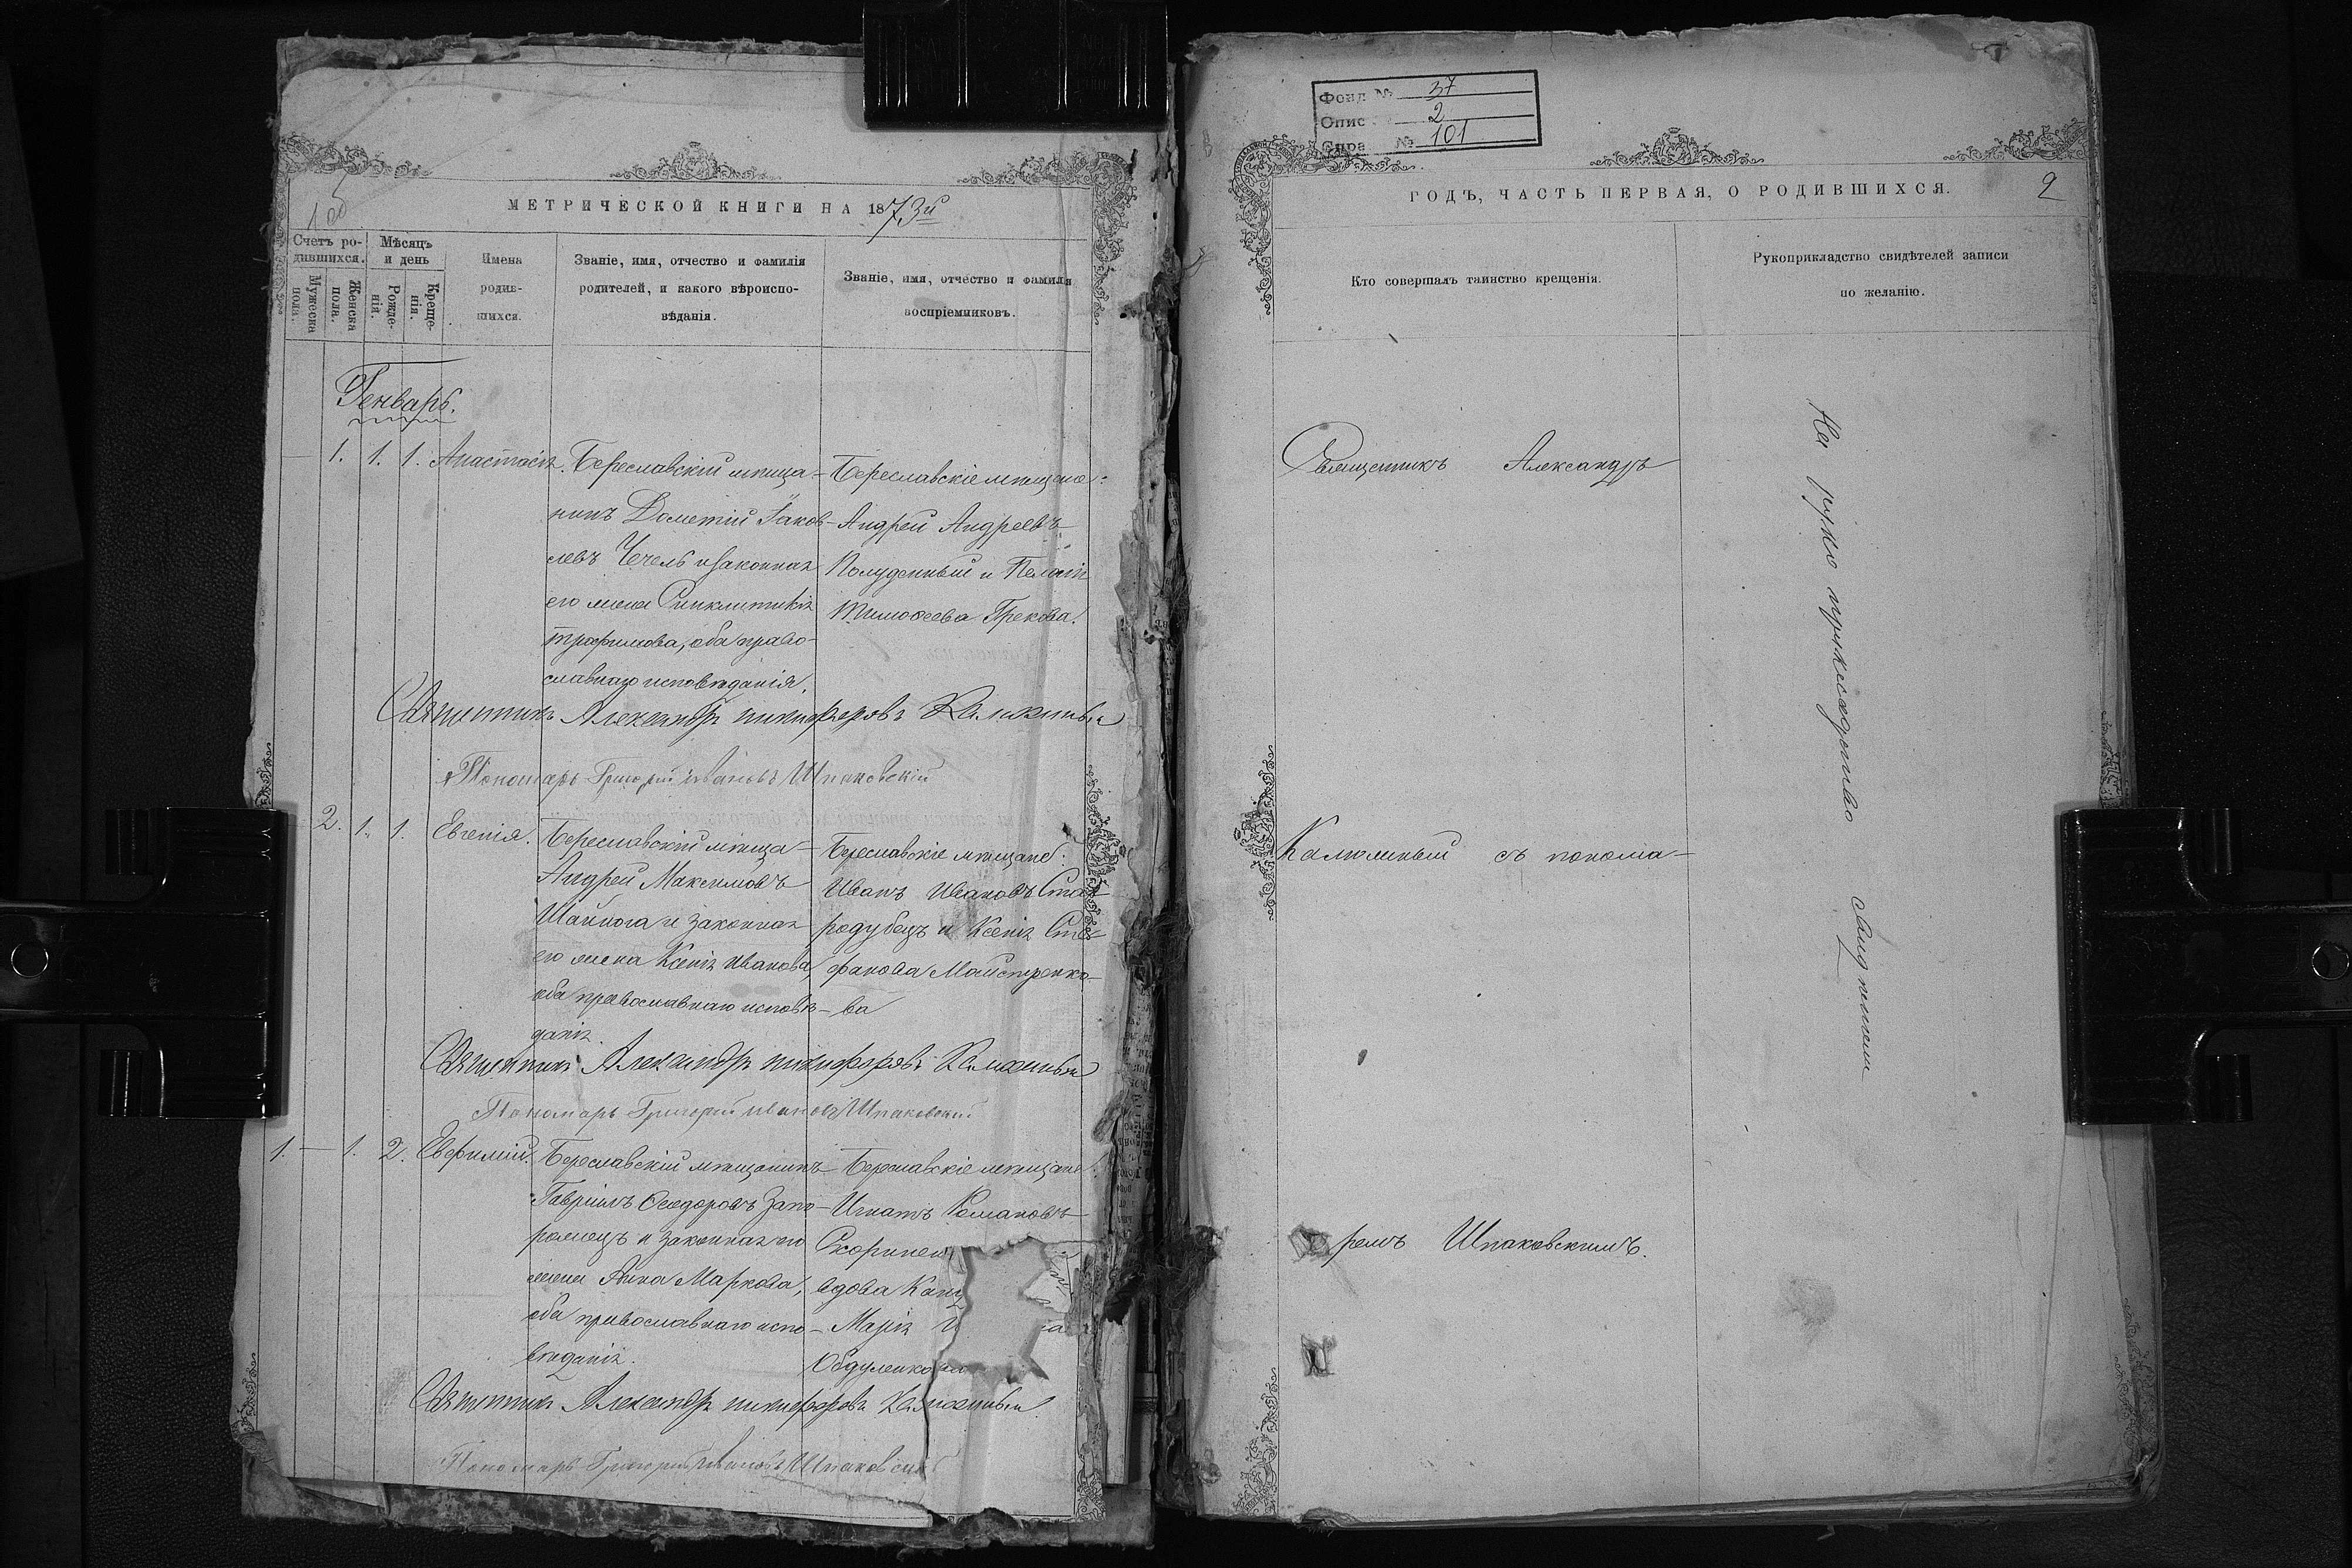 МЕТРИЧЕСКОЙ КНИГИ НА 1873й
Счетъ родившихся.
Мужеска пола.
Женска пола.
Мѣсяцъ и день
Рожденія.
Крещенія.
Имена родившихся.
Званіе, имя, отчество и фамилія
родителей, и какого вѣроиспо-
вѣданія.
Званіе, имя, отчество и фамилія
воспріемниковъ.
Генварь.
— 1. 1. 1. Анастасія.
Береславскій мѣща-
нинъ Дометій Іаков-
левъ Чечель и законная
его жена Синклитикія
Трофимова, оба право-
славнаго исповѣданія.
Береславскіе мѣщане:
Андрей Андреевъ
Полуденный и Пелагія
Тимоѳеева Грекова.
Священникъ Александръ Никифоровъ Калюжный
Пономарь Григорій Ивановъ Шпаковскій
2. 1. 1. Евгенія.
Береславскій мѣща-
Андрей Максимовъ
Шайнога и законная
его жена Ксенія Иванова
оба православнаго исповѣ-
данія.
Береславскіе мѣщане:
Иванъ Ивановъ Ста-
родубецъ и Ксенія Сте-
фанова Майстренко-
ва
Священникъ Александръ Никифоровъ Калюжный
Пономарь Григорій Ивановъ Шпаковскій
1. — 1. 2. Евфимій.
Береславскій мѣщанинъ
Гавріилъ Ѳеодоровъ Запо-
рожецъ и законная его
жена Анна Маркова,
оба православнаго испо-
вѣданія.
Береславскіе мѣщане:
Игнатъ Романовъ
вдова
Марія
Священникъ Александръ Никифоровъ Калюжный
Пономарь Григорій Ивановъ Шпаковскій
Фонд № 37
Опис 2
Спра № 101
2
ГОДЪ, ЧАСТЬ ПЕРВАЯ, О РОДИВШИХСЯ.
Кто совершалъ таинство крещенія.
Рукоприкладство свидѣтелей записи
по желанію.
Священникъ Александръ
Калюжный съ понома-
ремъ Шпаковскимъ.